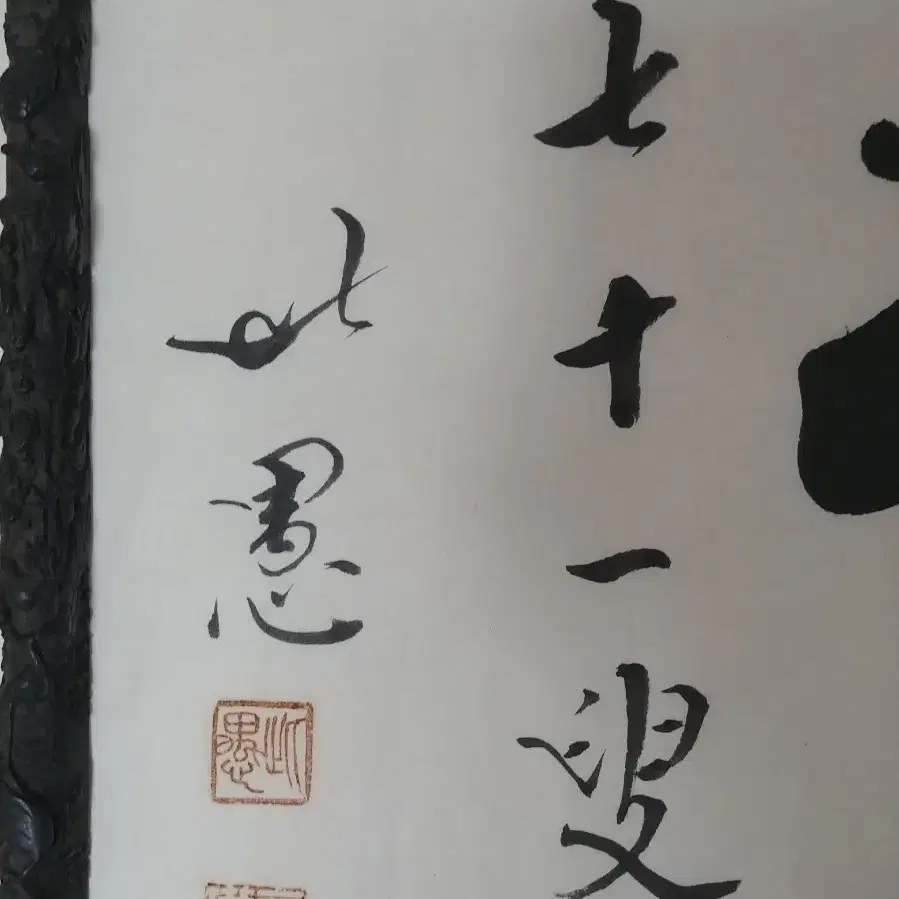 七十一叟
此愚
此愚